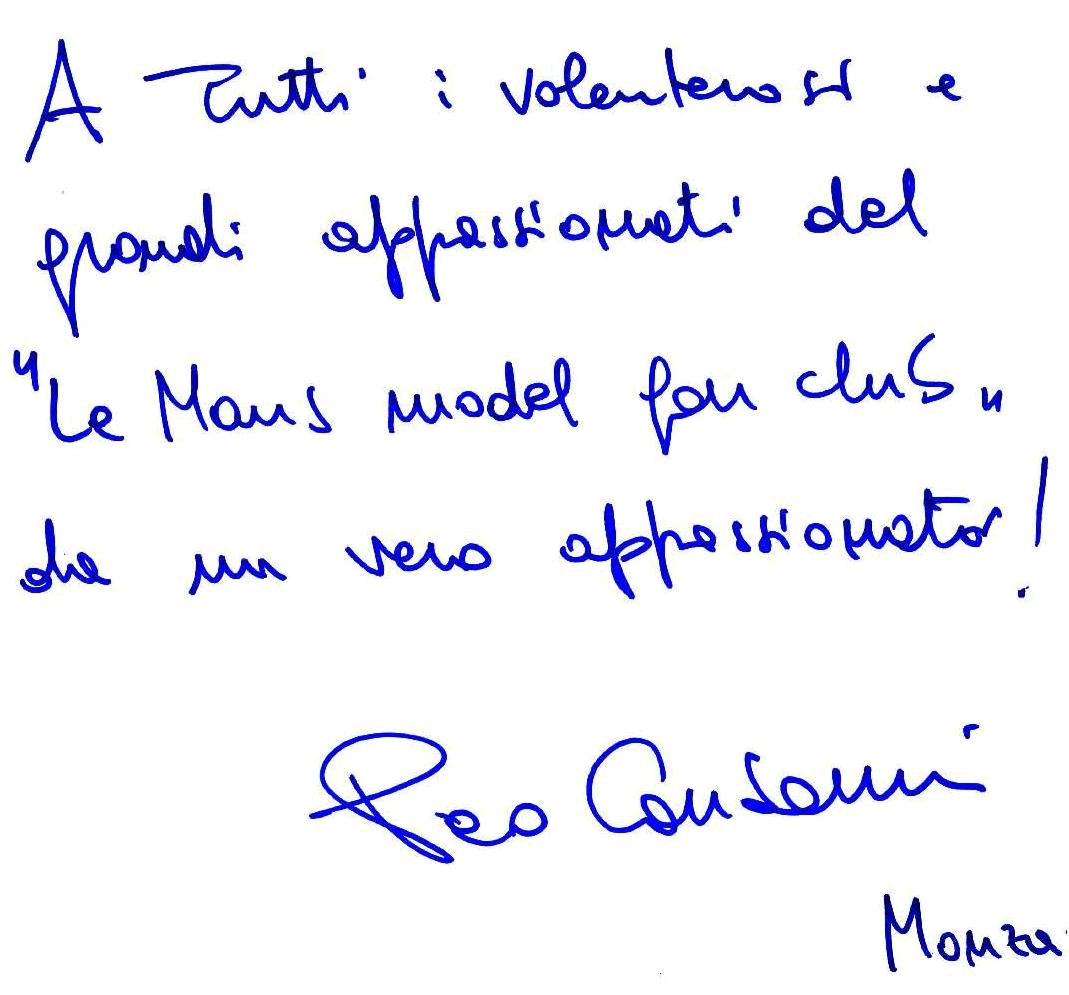 A Tutti i volenterosi e
grandi appassionati del
"Le Mans model fan club"
da un vero appassionato!
Peo Consonni
Monza